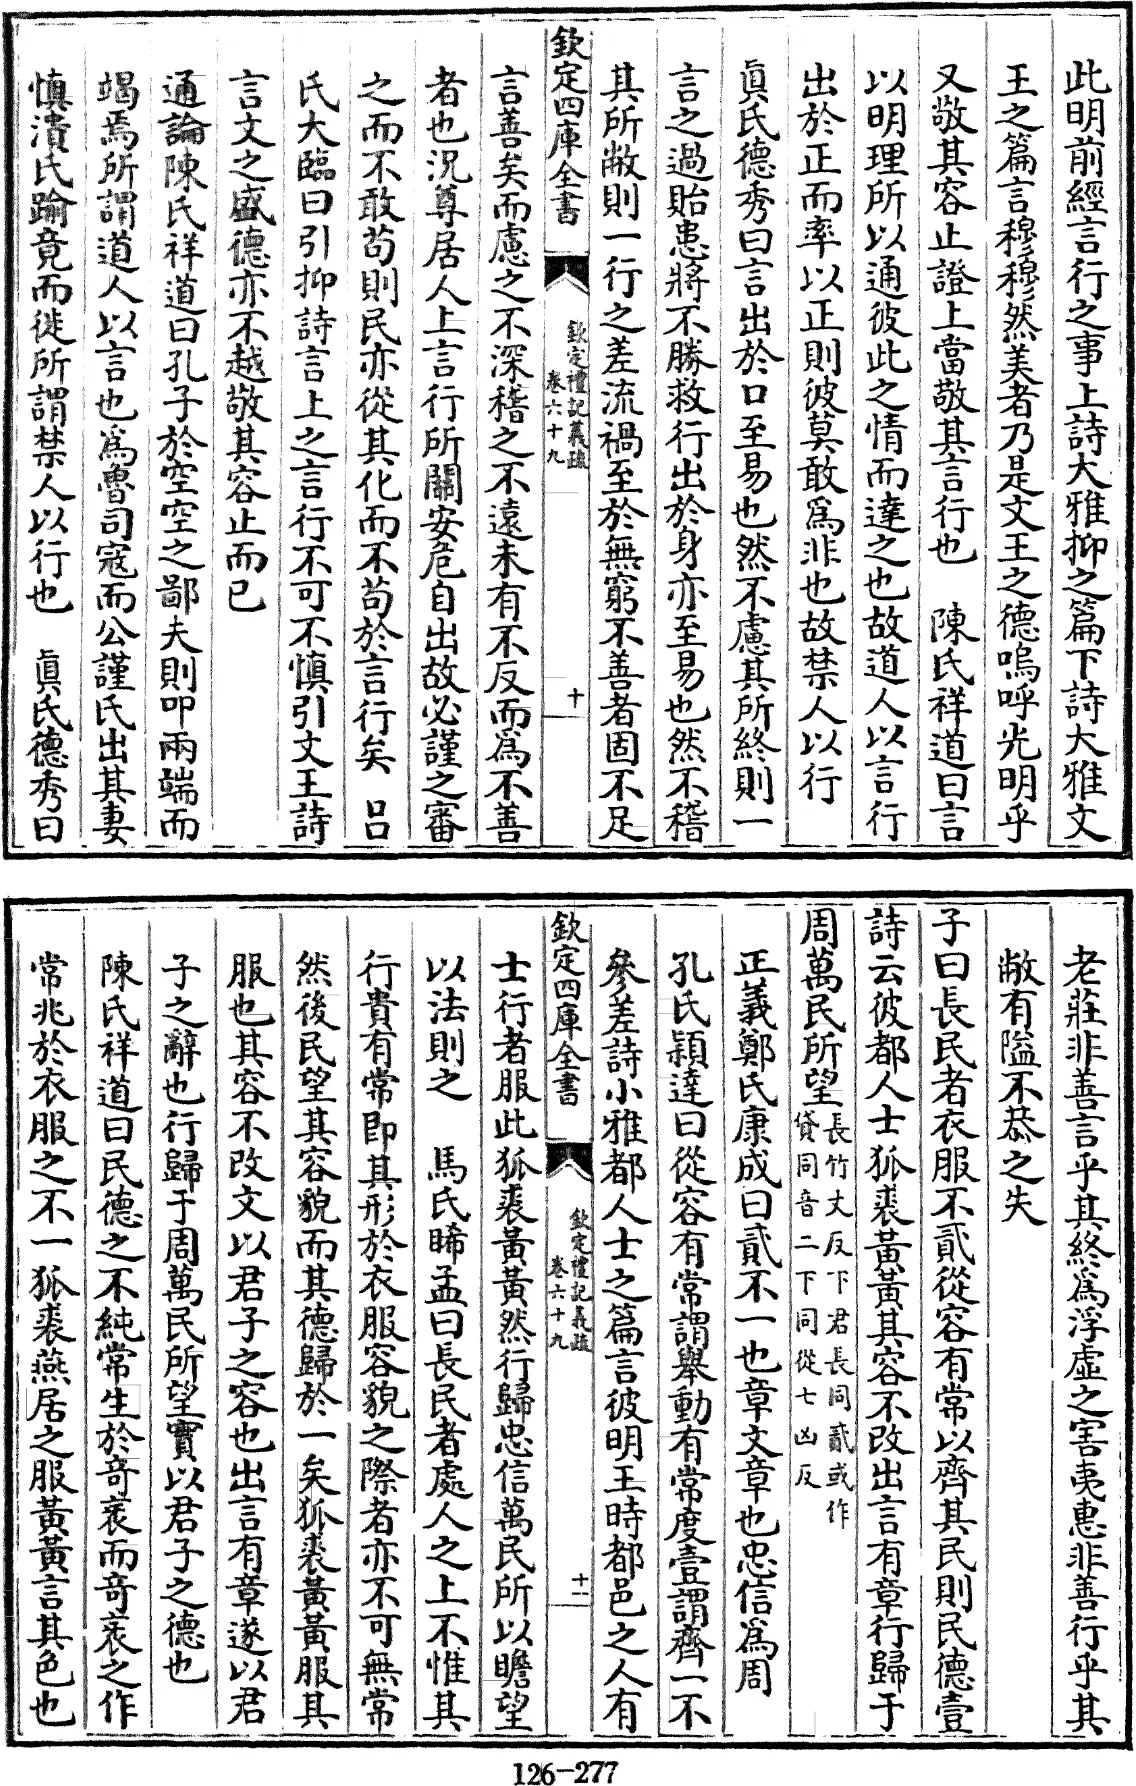 此明前經言行之事上詩大雅抑之篇下詩大雅文
王之篇言穆穆然美者乃是文王之德嗚呼光明乎
又敬其容止證上當敬其言行也　陳氏祥道曰言
以明理所以通彼此之情而達之也故道人以言行
出於正而率以正則彼莫敢為非也故禁人以行
眞氏德秀曰言出於口至易也然不慮其所終則一
言之過貽患將不勝救行出於身亦至易也然不稽
其所敝則一行之差流禍至於無窮不善者固不足
欽定四庫全書
欽定禮記義疏
卷六十九
十
言善矣而慮之不深稽之不遠未有不反而為不善
者也況尊居人上言行所關安危自出故必謹之審
之而不敢苟則民亦從其化而不苟於言行矣　呂
氏大臨曰引抑詩言上之言行不可不慎引文王詩
言文之盛德亦不越敬其容止而已
通論陳氏祥道曰孔子於空空之鄙夫則叩兩端而
竭焉所謂道人以言也為魯司寇而公謹氏出其妻
慎潰氏踰竟而徙所謂禁人以行也　眞氏德秀曰
老莊非善言乎其終為浮虛之害夷惠非善行乎其
敝有隘不恭之失
子曰長民者衣服不貳從容有常以齊其民則民德壹
詩云彼都人士狐裘黃黃其容不改出言有章行歸于
周萬民所望長竹丈反下君長同貳或作
貣同音二下同從七凶反
正義鄭氏康成曰貳不一也章文章也忠信為周
孔氏穎達曰從容有常謂舉動有常度壹謂齊一不
參差詩小雅都人士之篇言彼明王時都邑之人有
欽定四庫全書
欽定禮記義疏
卷六十九
十一
士行者服此狐裘黃黃然行歸忠信萬民所以瞻望
以法則之　馬氏晞孟曰長民者處人之上不惟其
行貴有常卽其形於衣服容貌之際者亦不可無常
然後民望其容貌而其德歸於一矣狐裘黃黃服其
服也其容不改文以君子之容也出言有章遂以君
子之辭也行歸于周萬民所望實以君子之德也
陳氏祥道曰民德之不純常生於奇衺而奇衺之作
常兆於衣服之不一狐裘燕居之服黃黃言其色也
126-277